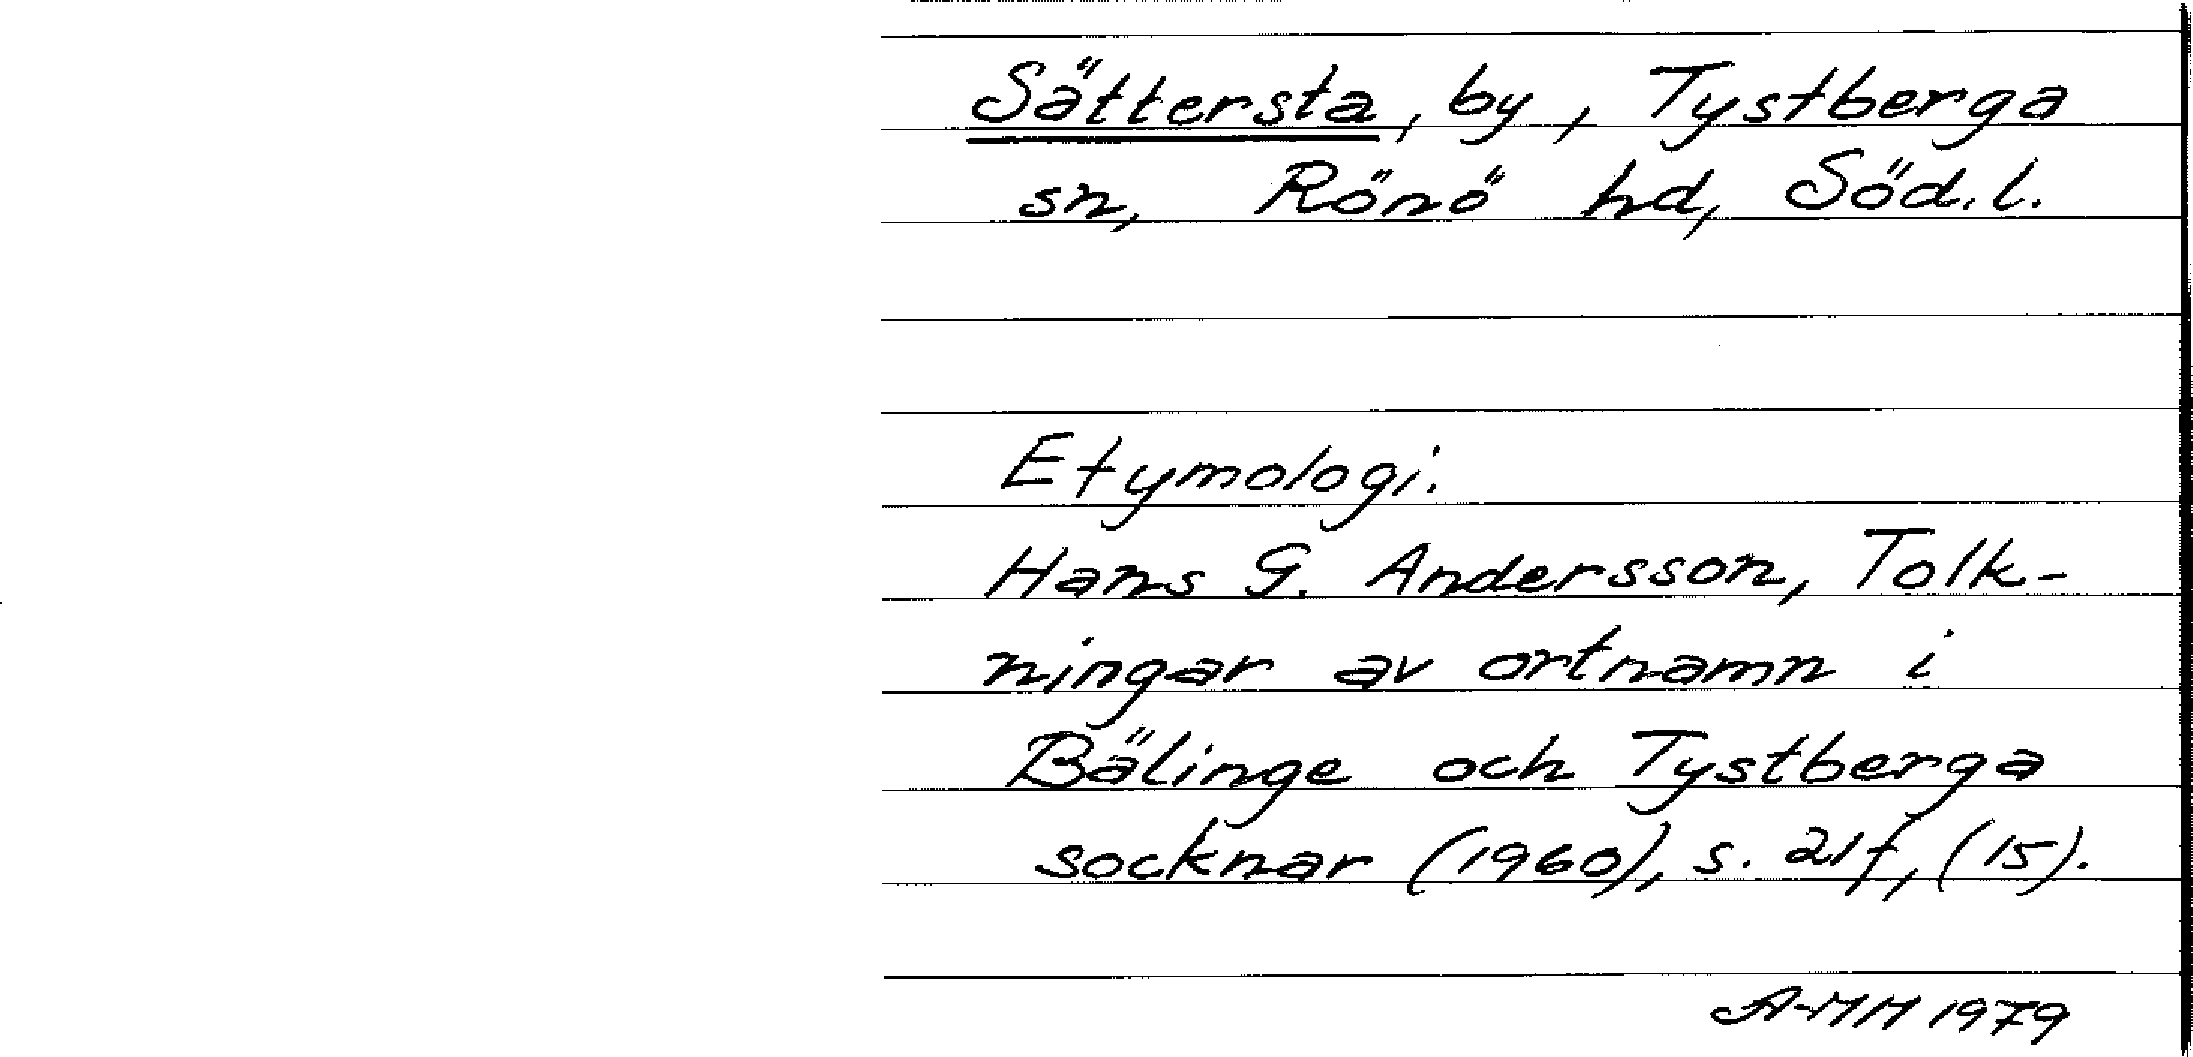 Sättersta, by, Tystberga
sn, Rönö hd, Söd. l.
Etymologi:
Hans G. Andersson, Tolk-
ningar av ortnamn i
Bälinge och Tystberga
socknar (1960), s. 21f, (15).
A-MM 1979